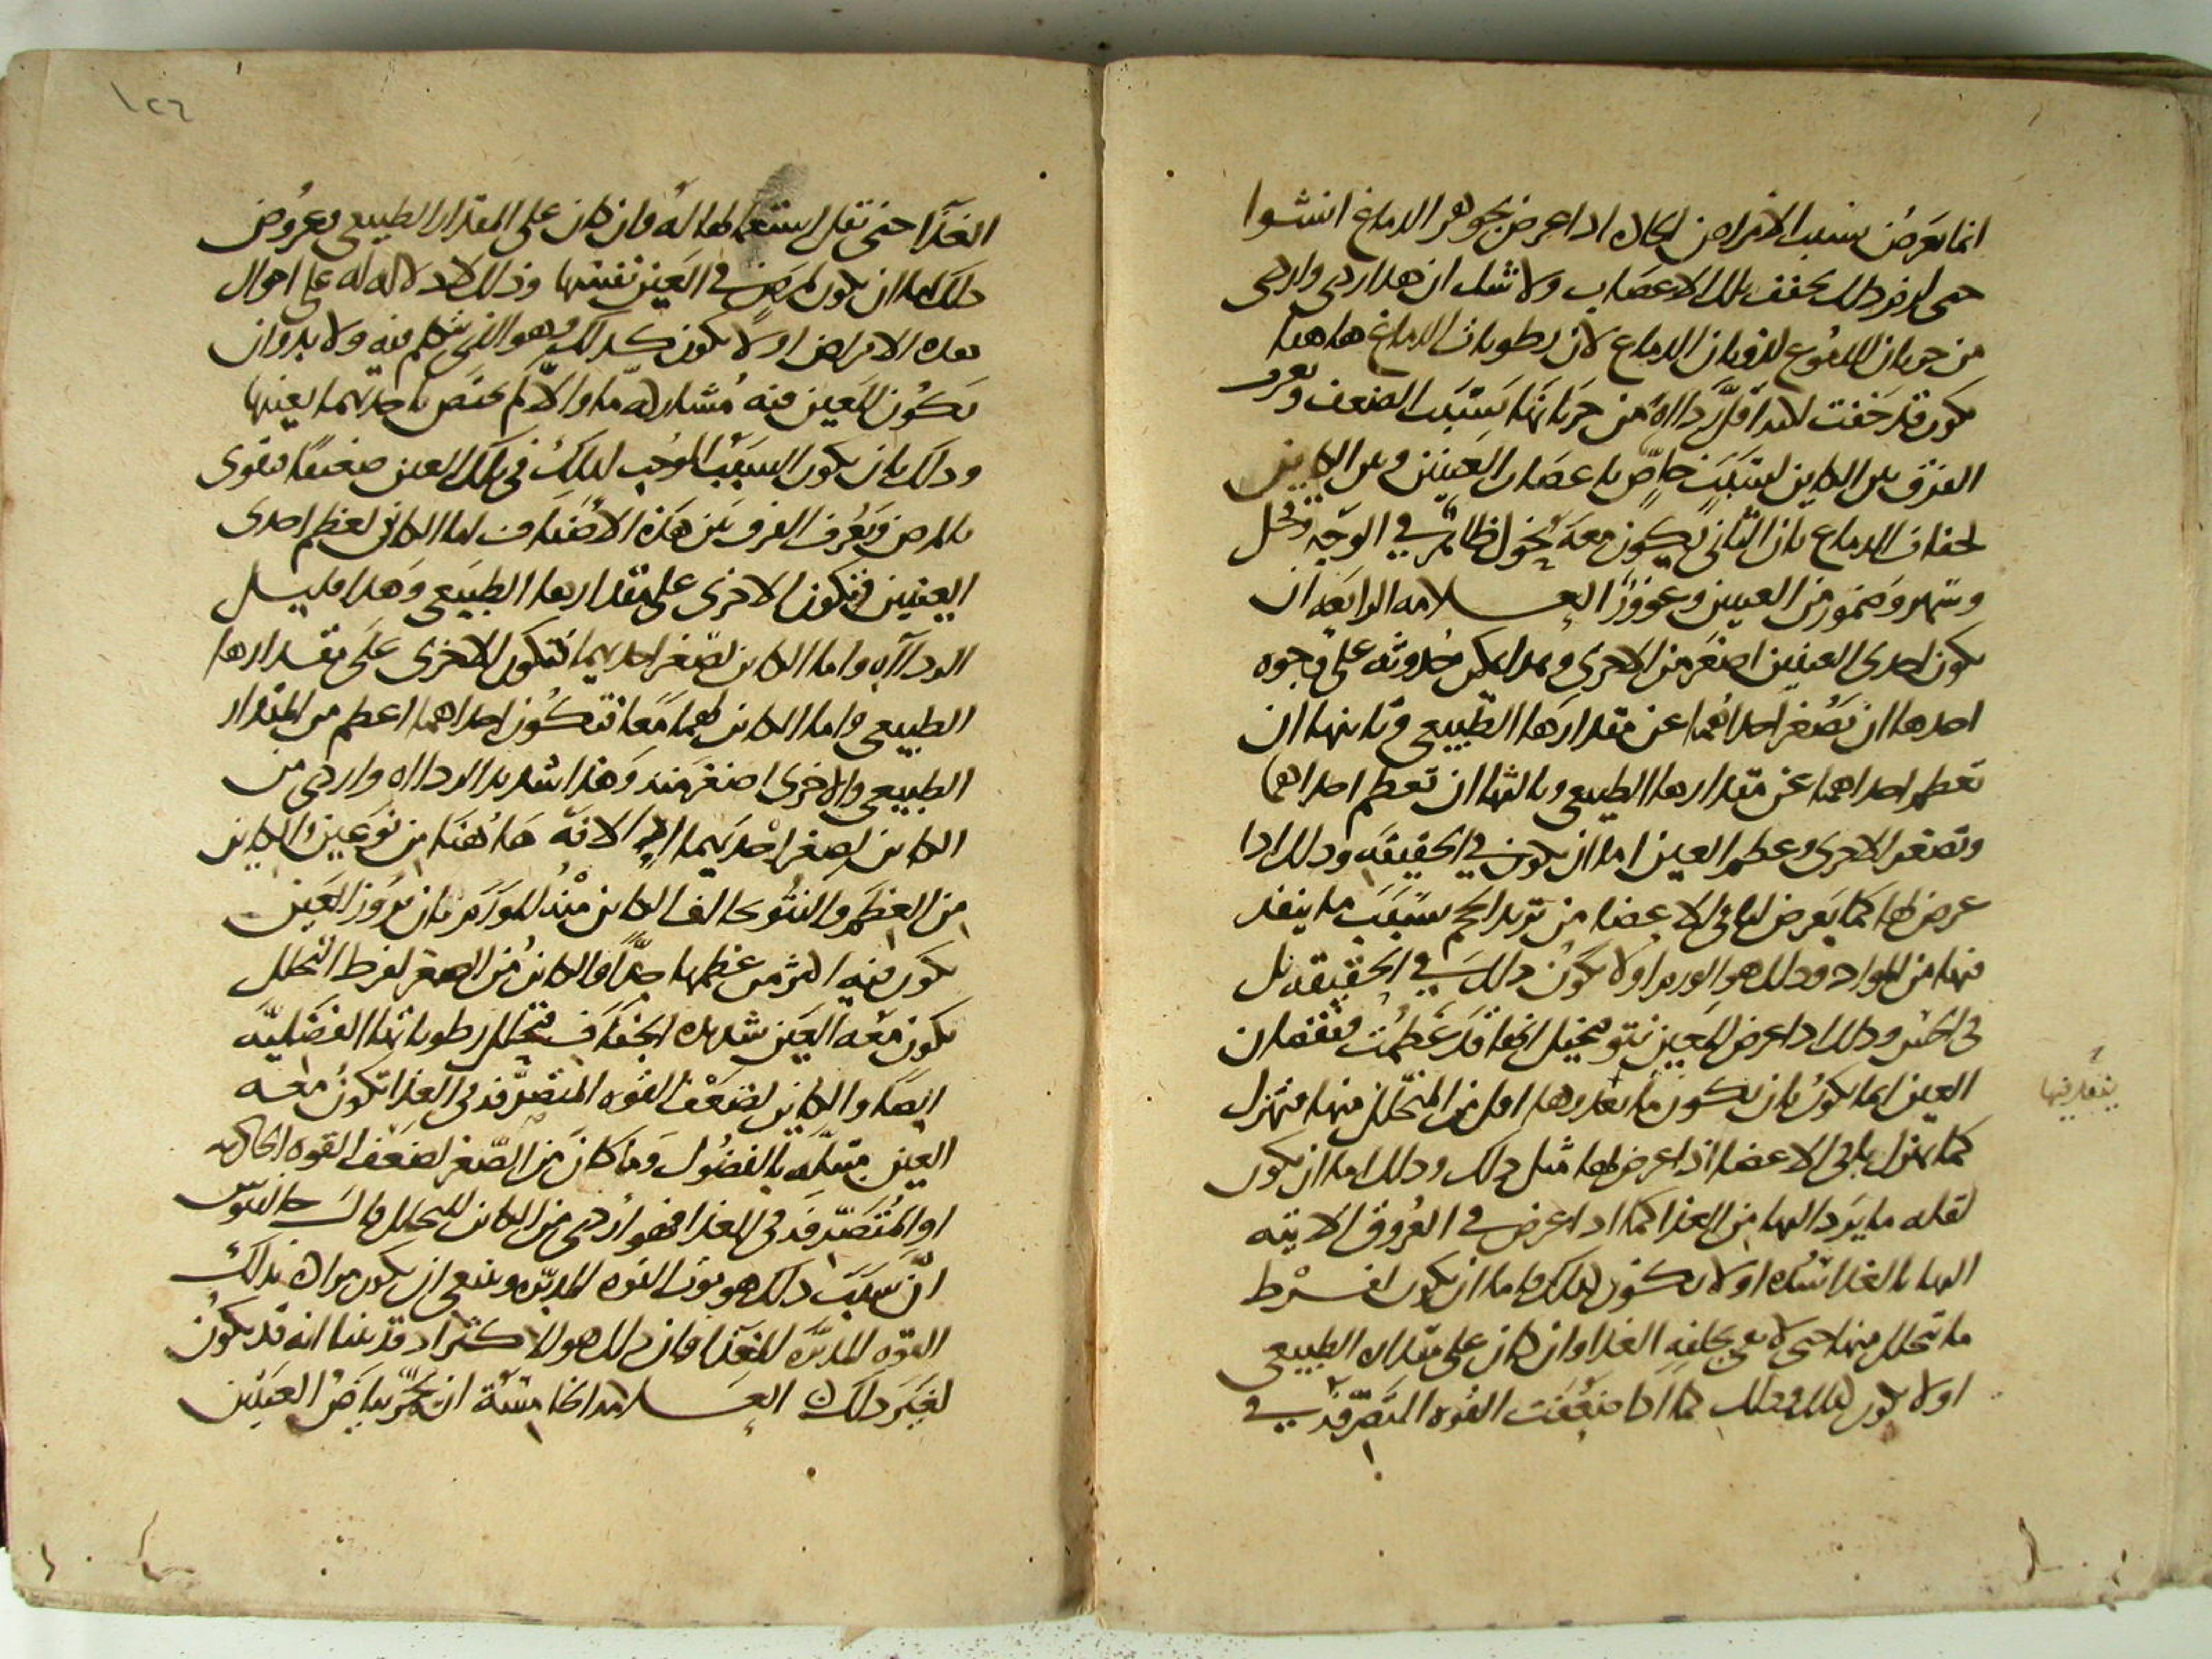 انما يعرض بسبب الامراض الحاده اذا عرض بجوهر الدماغ انشوا
حتى لزم ذلك تجفف تلك الاعصاب ولا شك ان هذا اردى واردى
من جريان الدموع لذوبان الدماغ لان رطوبات الدماغ هاهنا
يكون قد جفت لهذا اقل رداءه من جريانها بسبب الضعف ويعرف
الفرق بين الكاين لسبب خاص باعصاب العينين وبين الكاين
لجفاف الدماغ بان الثاني يكون معه نحول ظاهر في الوجه
وسهر وضمور من العينين وغوور العلامه الرابعه ان
يكون احدى العينين اصغر من الاخرى وهذا يمكن حدوثه على وجوه
احدها ان تصغر احداهما عن مقدارها الطبيعي وثانيها ان
تعظم احداهما عن مقدارها الطبيعي وثالثها ان تعظم احداهما
وتصغر الاخرى وعظم العين اما ان يكون في الحقيقه وذلك اذا
عرض لها كما يعرض لباقي الاعضا من تزيد الحجم بسبب ما ينفذ
فيها من المواد وذلك هو الورم اولا يكون ذلك في الحقيقه بل
في الحس وذلك اذا عرض للعين نتو فيخيل انها قد عظمت ونقصان
العين انما يكون بان يكون ما يغذوها اقل من المتحلل منها فتهزل
كما يهزل باقي الاعضا اذا عرض لها مثل ذلك وذلك اما ان يكون
لقله ما يرد اليها من الغذا كما اذا عرض في العروق الاتيه
اليها بالغذا سده اولا يكون كذلك فاما ان يكون لفرط
ما تحلل منها حتى لا يفي بخلفه الغذا وان كان على مقداره الطبيعي
اولا يكون كذلك وذلك كما اذا ضعفت القوه المتصرفه في
الغذا حتى تقل استعمالها له وان كان على المقدار الطبيعي وعروض
ذلك اما ان يكون لمرض في العين نفسها وذلك لا دلاله له على احوال
هذه الامراض اولا يكون كذلك وهو الذي نتكلم فيه ولا بد وان
يكون للعين فيه مشاركه ما والا لم يختص باحديهما بعينها
وذلك بان يكون السبب الموجب لذلك في تلك العين ضعيفا فيقوى
بالمرض ويعرف الفرق بين هذه الاصناف اما الكاين لعظم احدى
العينين فتكون الاخرى على مقدارها الطبيعي وهذا قليل
الرداآه واما الكاين لصغر احديهما فتكون الاخرى على مقدارها
الطبيعي واما الكاين لهما معا فتكون احداهما اعظم من المقدار
الطبيعي والاخرى اصغر منه وهذا شديد الرداآه واردى من
الكاين لصغر احديهما لانه هاهنا من نوعين والكاين
من العظم والنتو يخالف الكاين منه للورم بان بروز العين
يكون فيه اكثر من عظمها جدا والكاين من الصغر لفرط التحلل
يكون معه العين شديده الجفاف فتحلل رطوباتها الفضليه
ايضا والكاين لضعف القوه المتصرفه في الغذا تكون معه
العين مبتله بالفضول وما كان من الصغر لضعف القوه الجاذبه
او المتصرفه في الغذا فهو اردى من الكاين للتحلل قال جالينوس
ان سبب ذلك هو موت القوه المدبره وينبغي ان يكون مراده بذلك
القوه المدبره للغذا فان ذلك هو الاكثر اذ قد بينا انه قد يكون
لغير ذلك العلامه الخامسه ان يحمر بياض العينين